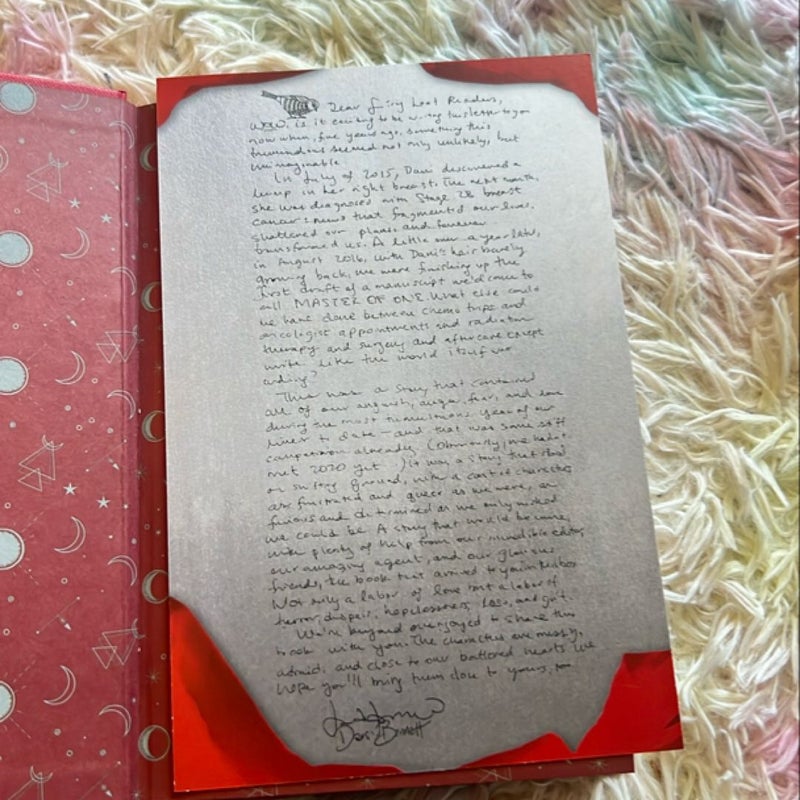 Dear Fairy Loot Readers,
Wow, is it exciting to be writing this letter to you
now when, five years ago, something this
tremendous seemed not only unlikely, but
unimaginable.
In July of 2015, Dani discovered a
lump in her right breast. The next month,
she was diagnosed with Stage 2B breast
cancer: news that fragmented our lives,
shattered our plans, and forever
transformed us. A little over a year later,
in August 2016, with Dani's hair barely
growing back, we were finishing up the
first draft of a manuscript we'd come to
call MASTER OF ONE. What else could
we have done between chemo trips and
oncologist appointments and radiation
therapy and surgery and aftercare except
write like the world itself was
ending?
This was a story that contained
all of our anguish, anger, fear, and love
during the most tumultuous year of our
lives to date—and that was some stiff
competition already. (Obviously, we hadn't
met 2020 yet.) It was a story that stood
on strong ground, with a cast of characters
as frustrated and queer as we were, as
furious and determined as we only wished
we could be. A story that would become,
with plenty of help from our incredible editor,
our amazing agent, and our glorious
friends, the book that arrived to you in this box.
Not only a labor of love but a labor of
terror, despair, hopelessness, loss, and grit.
We're beyond overjoyed to share this
book with you. The characters are messy,
afraid, and close to our battered hearts. We
hope you'll bring them close to yours, too.
Dani Bennett